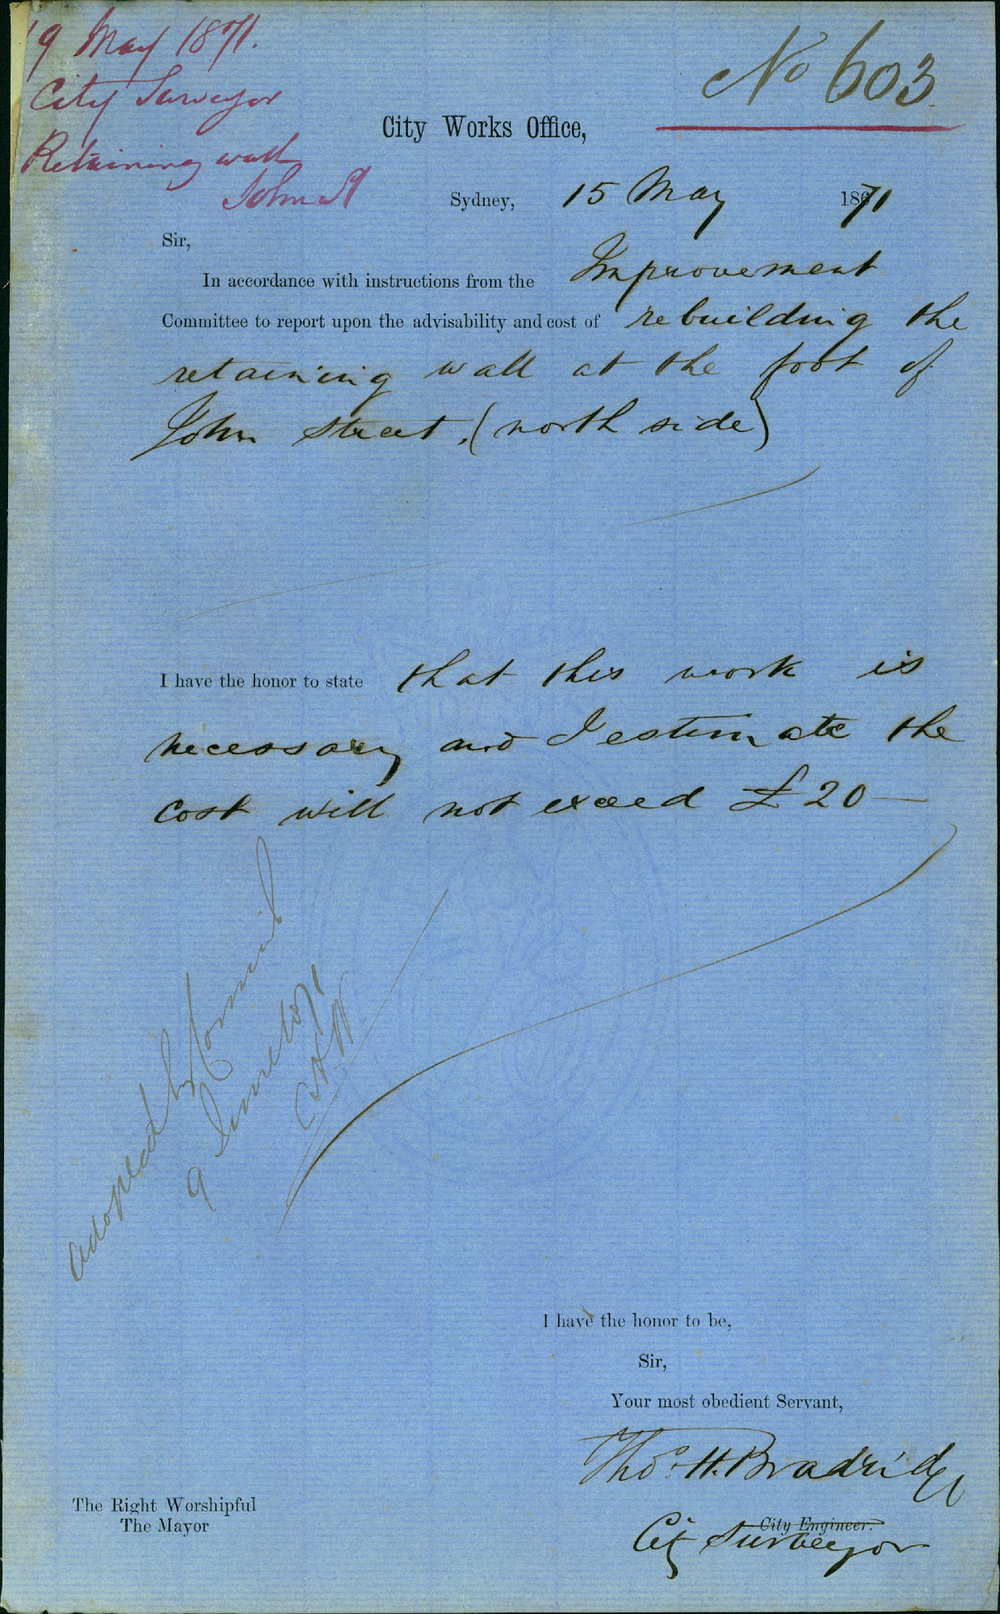 19 May 1871.
City Surveyor
Retaining wall
John St
No 603
City Works Office,
Sydney, 15 May 1871
Sir,
In accordance with instructions from the Improvement
Committee to report upon the advisability and cost of rebuilding the
retaining wall at the foot of
John Street. (north side)
I have the honor to state that this work is
necessary and I estimate the
cost will not exceed £20—
Adopted by
9
I have the honor to be,
Sir,
Your most obedient Servant,
Thos. H. Bradridge
City Engineer.
City Surveyor
The Right Worshipful
The Mayor